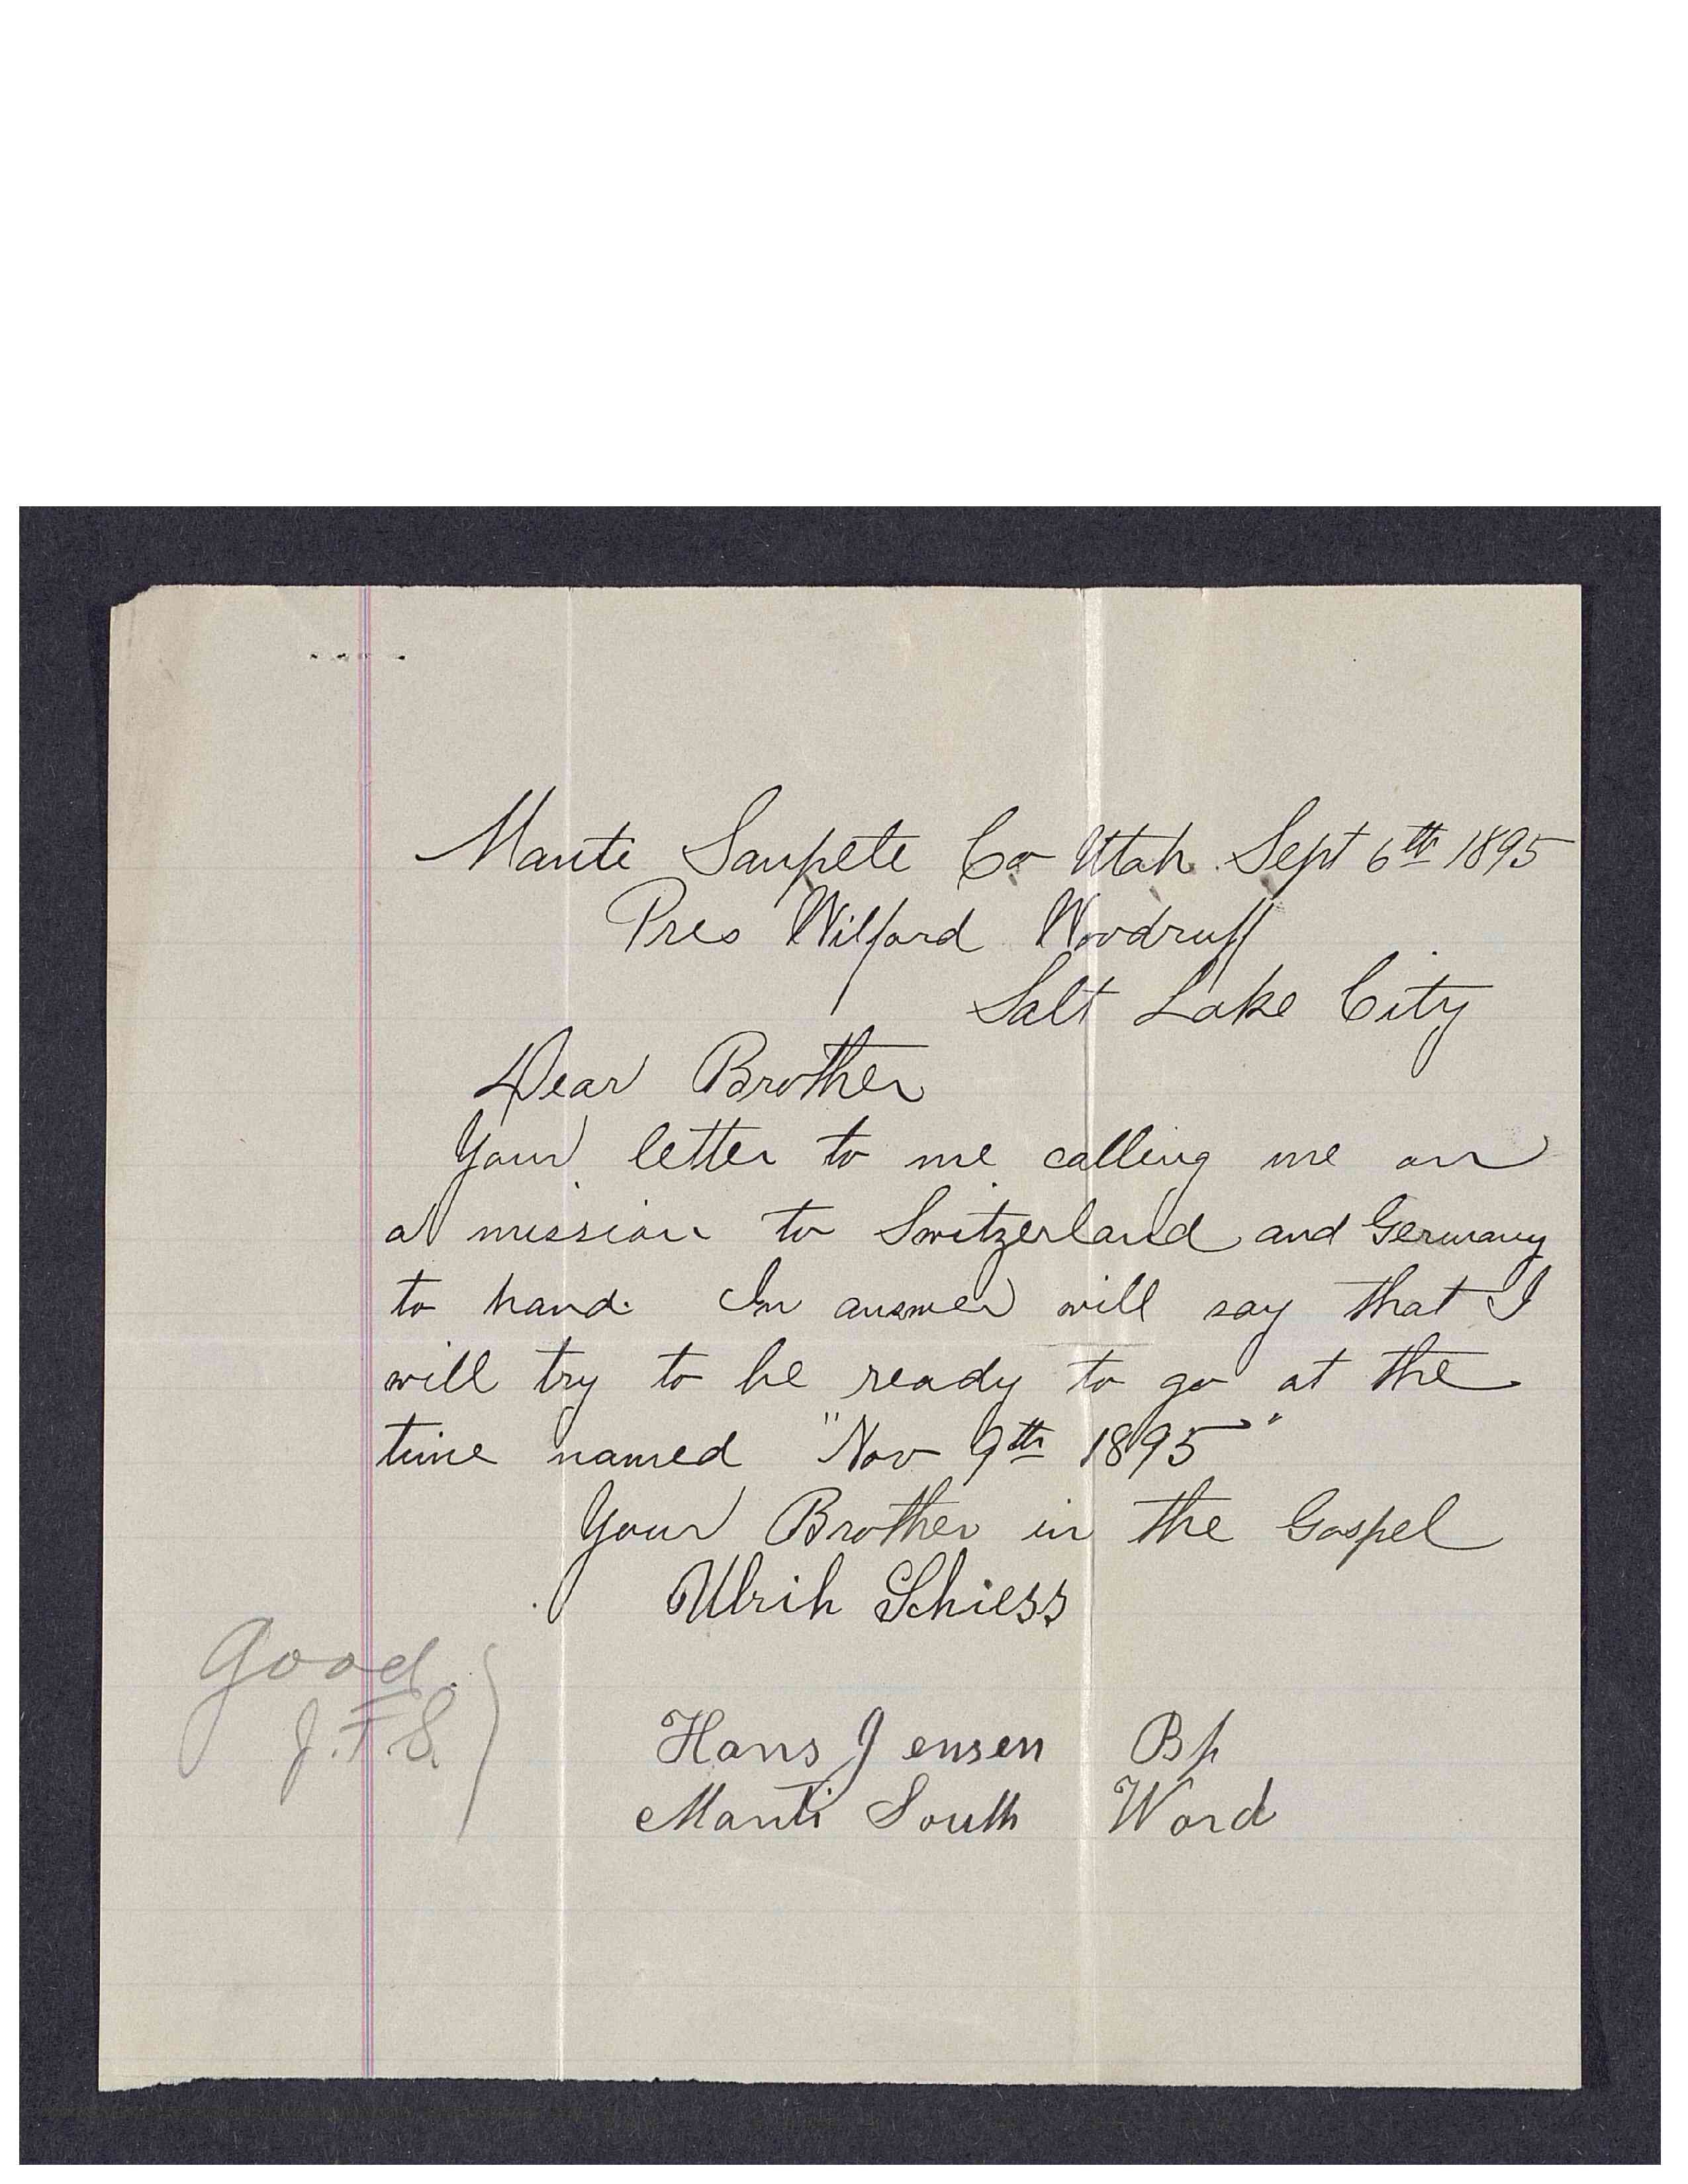 Manti Sanpete Co Utah Sept 6th 1895
Pres Wilford Woodruff
Salt Lake City
Dear Brother
Your letter to me calling me on
a mission to Switzerland and Germany
to hand. In answer will say that I
will try to be ready to go at the
time named "Nov 9th 1895"
Your Brother in the Gospel
Ulrih Schiess
Good.
J.F.S.
Hans Jensen Bp
Manti South Ward